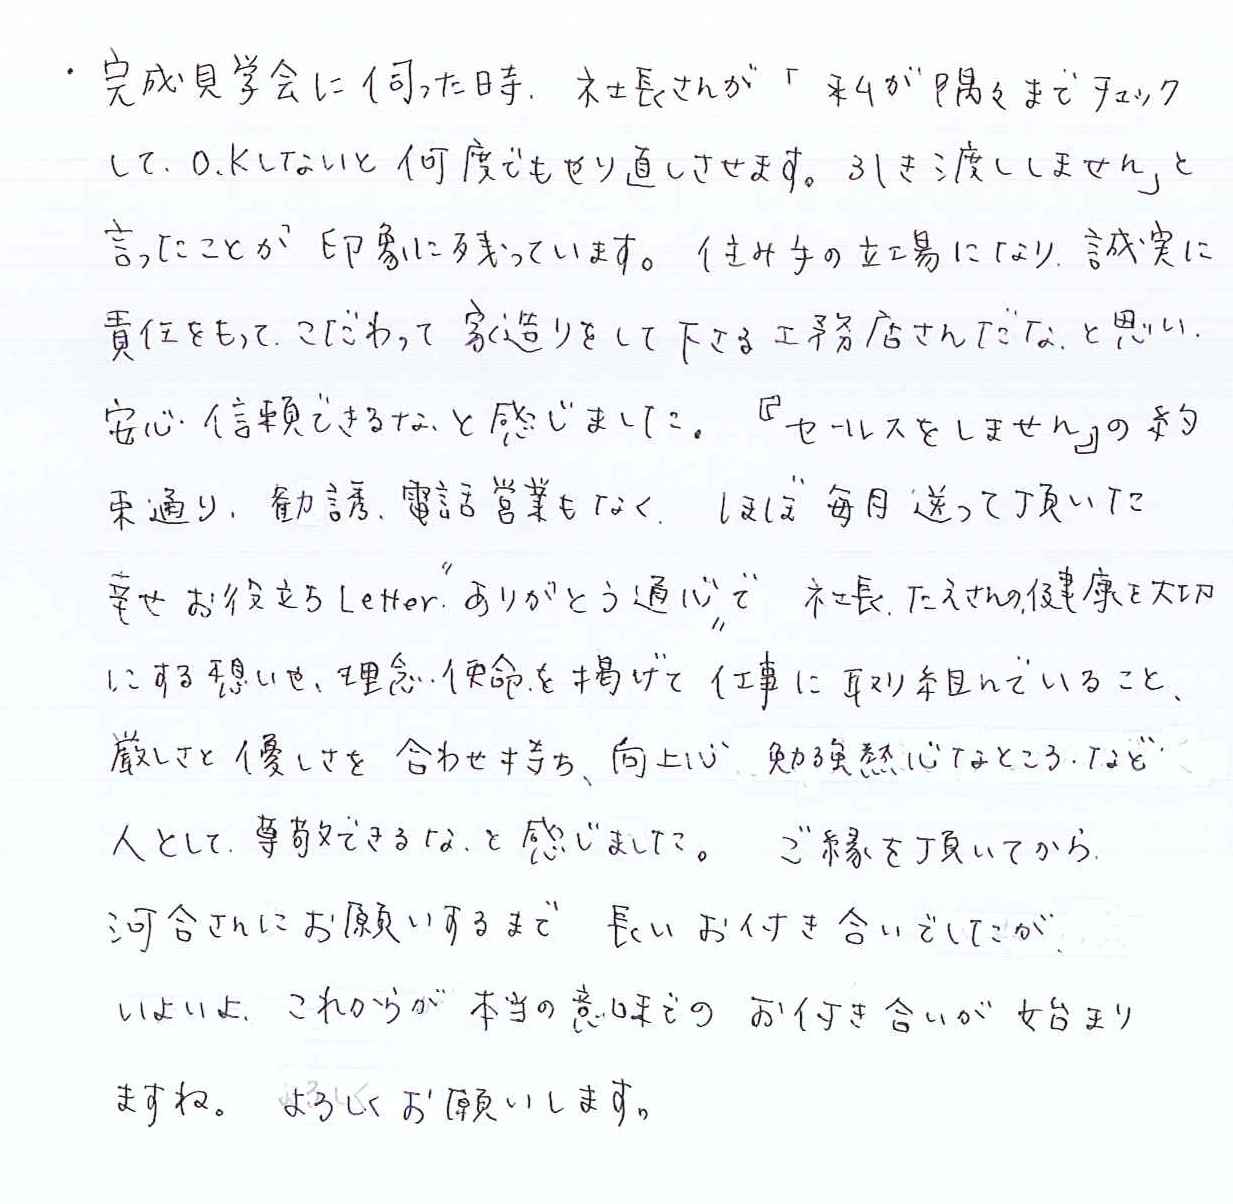 ・完成見学会に伺った時、社長さんが「私が隅々までチェック
して、O.Kしないと何度でもやり直しさせます。引き渡ししません」と
言ったことが印象に残っています。住み手の立場になり、誠実に
責任をもって、こだわって家造りをして下さる工務店さんだな、と思い、
安心・信頼できるな、と感じました。『セールスをしません』の約
束通り、勧誘、電話営業もなく、ほぼ毎月送って頂いた
幸せお役立ちLetter“ありがとう通心”で社長、たえさんの健康を大切
にする想いや、理念・使命を掲げて仕事に取り組んでいること、
厳しさと優しさを合わせ持ち、向上心、勉強熱心なところ、など
人として、尊敬できるな、と感じました。ご縁を頂いてから、
河合さんにお願いするまで長いお付き合いでしたが、
いよいよ、これからが本当の意味でのお付き合いが始まり
ますね。よろしくお願いします。